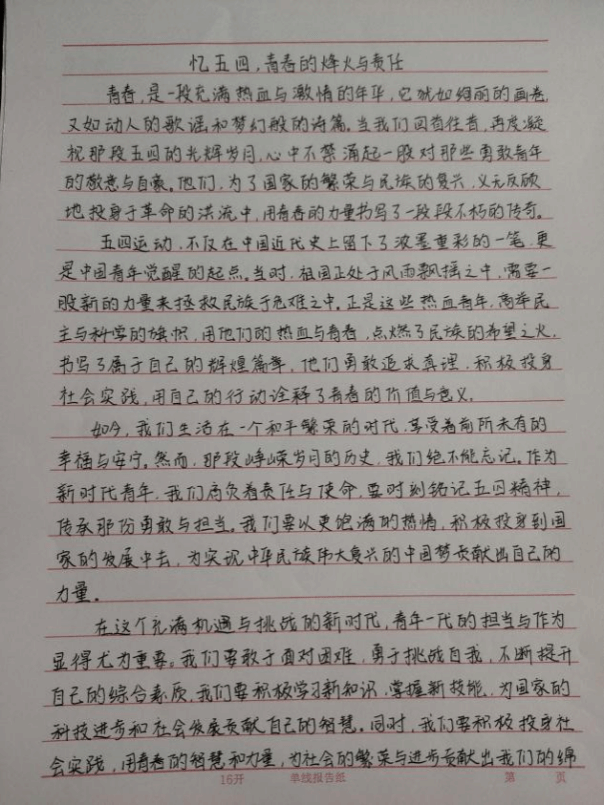 忆五四,青春的烽火与责任
青春,是一段充满热血与激情的年华,它犹如绚丽的画卷,
又如动人的歌谣和梦幻般的诗篇。当我们回首往昔,再度凝
视那段五四的光辉岁月,心中不禁涌起一股对那些勇敢青年
的敬意与自豪。他们,为了国家的繁荣与民族的复兴,义无反顾
地投身于革命的洪流中,用青春的力量书写了一段段不朽的传奇。
五四运动,不仅在中国近代史上留下了浓墨重彩的一笔,更
是中国青年觉醒的起点。当时,祖国正处于风雨飘摇之中,需要一
股新的力量来拯救民族于危难之中。正是这些热血青年,高举民
主与科学的旗帜,用他们的热血与青春,点燃了民族的希望之火,
书写了属于自己的辉煌篇章,他们勇敢追求真理,积极投身
社会实践,用自己的行动诠释了青春的价值与意义。
如今,我们生活在一个和平繁荣的时代,享受着前所未有的
幸福与安宁。然而,那段峥嵘岁月的历史,我们绝不能忘记。作为
新时代青年,我们肩负着责任与使命,要时刻铭记五四精神,
传承那份勇敢与担当。我们要以更饱满的热情,积极投身到国
家的发展中去,为实现中华民族伟大复兴的中国梦贡献出自己的
力量。
在这个充满机遇与挑战的新时代,青年一代的担当与作为
显得尤为重要。我们要敢于面对困难,勇于挑战自我,不断提升
自己的综合素质,我们要积极学习新知识,掌握新技能,为国家的
科技进步和社会发展贡献自己的智慧。同时,我们要积极投身社
会实践,用青春的智慧和力量,为社会的繁荣与进步贡献出我们的绵
16开 单线报告纸 第 页